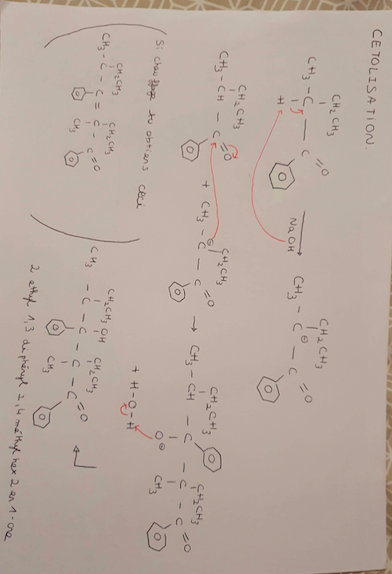 CETOLISATION.
CH2CH3
CH3 - C — C = O
H
NaOH
CH2CH3
CH3 - C - C = O
⊖
CH2CH3
CH3 - CH - C = O
+
CH2CH3
⊖
CH3 - C - C = O
CH2CH3 CH2CH3
CH3 - CH - C - C - C = O
O⊖ CH3
+ H - O - H
Si chauffage tu obtiens ceci
CH2CH3 CH2CH3
CH3 - C - C = C - C = O
CH3
CH2CH3 OH CH2CH3
CH3 - C - C - C - C = O
CH3
2 ethyl 1,3 diphényl 2,4 méthyl hex 2 en 1-one